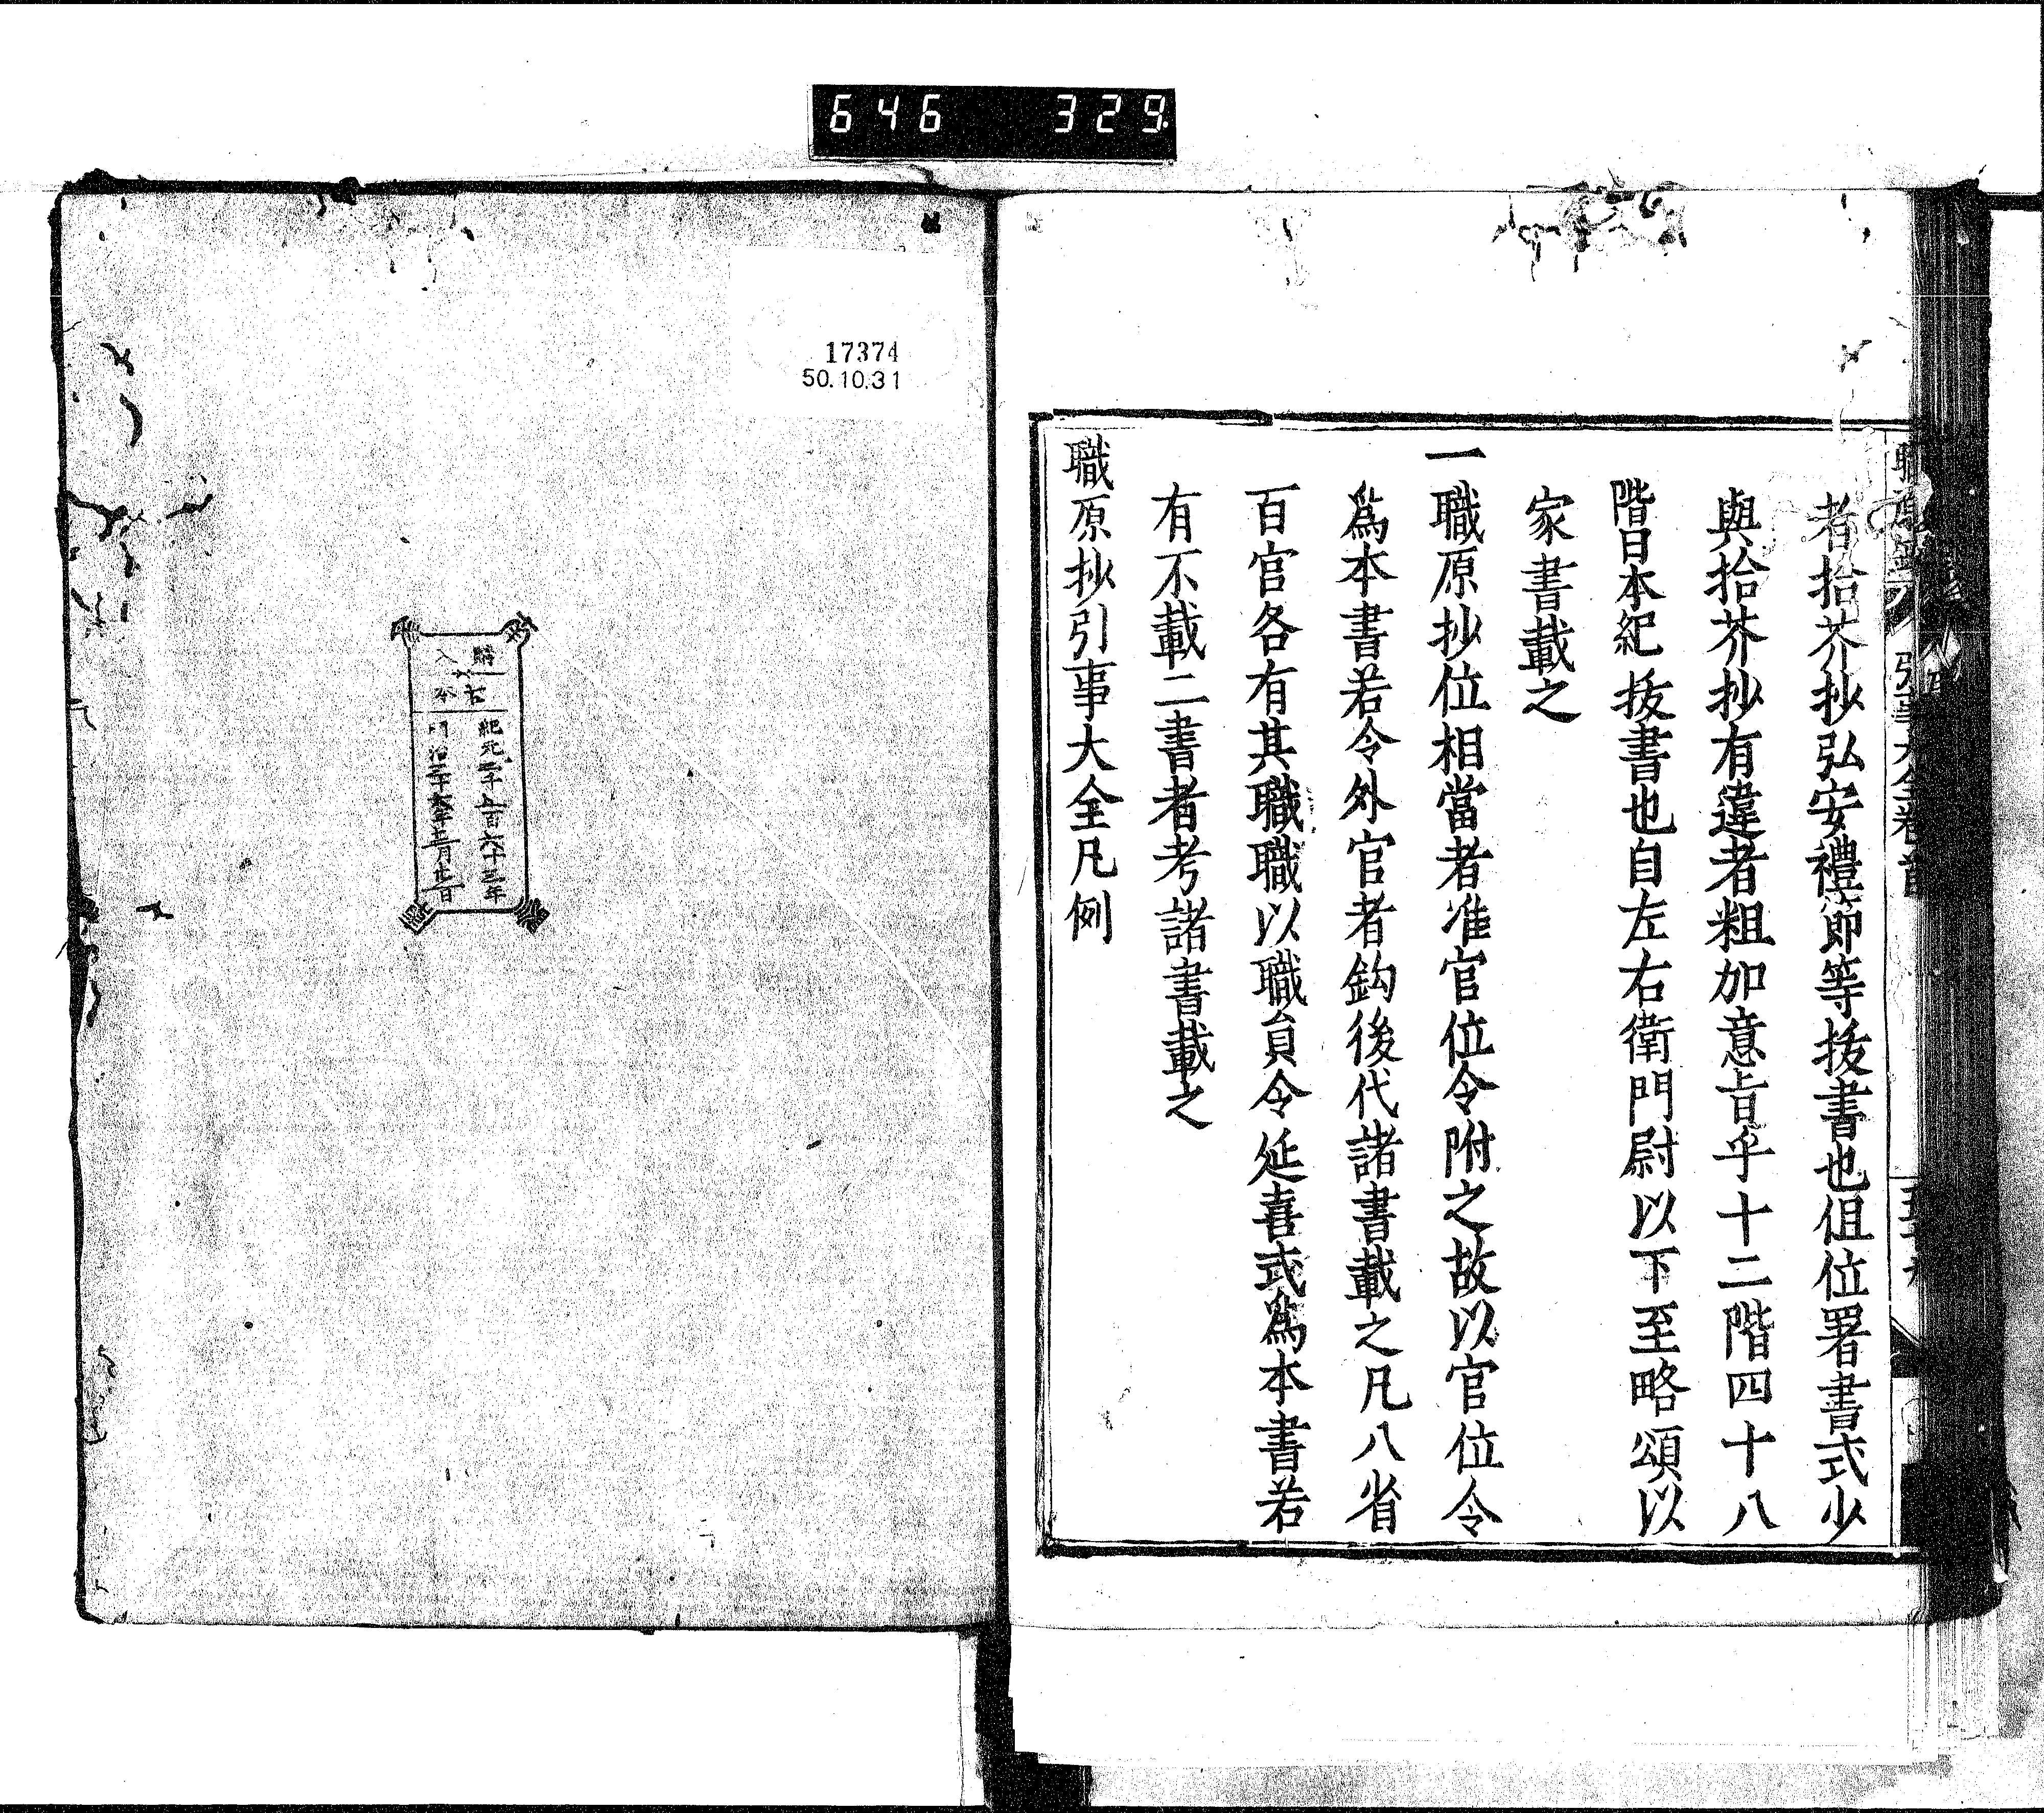 646 329
者拾芥抄弘安禮節等抜書也但位署書式少
與拾芥抄有違者粗加意旨乎十二階四十八
階日本紀抜書也自左右衛門尉以下至略頌以
家書載之
一職原抄位相當者准官位令附之故以官位令
爲本書若令外官者鈎後代諸書載之凡八省
百官各有其職職以職員令延喜式爲本書若
有不載二書者考諸書載之
職原抄引事大全凡例
17374
50.10.31
購入
紀元二千五百六十三年